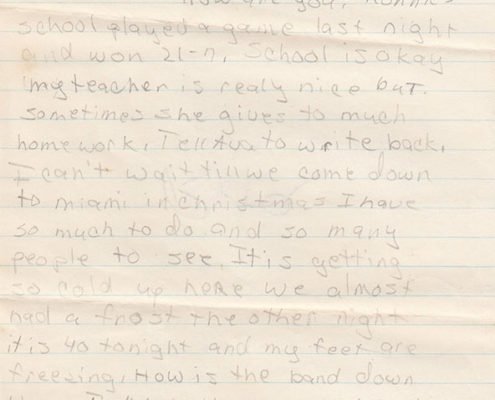 How are you,
school played a game last night
and won 21-7, School is okay
my teacher is realy nice but.
sometimes she gives to much
home work, Tell to write back,
I can't wait till we come down
to miami in christmas I have
so much to do and so many
people to see, It is getting
so cold up here we almost
had a frost the other night
it is 40 tonight and my feet are
freezing, How is the band down